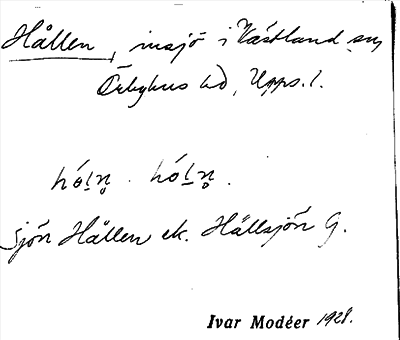 Hållen, insjö i Västland sn,
Örbyhus hd, Upps. l.
sjön Hållen ek. Hällsjön G.
Ivar Modéer 1928.